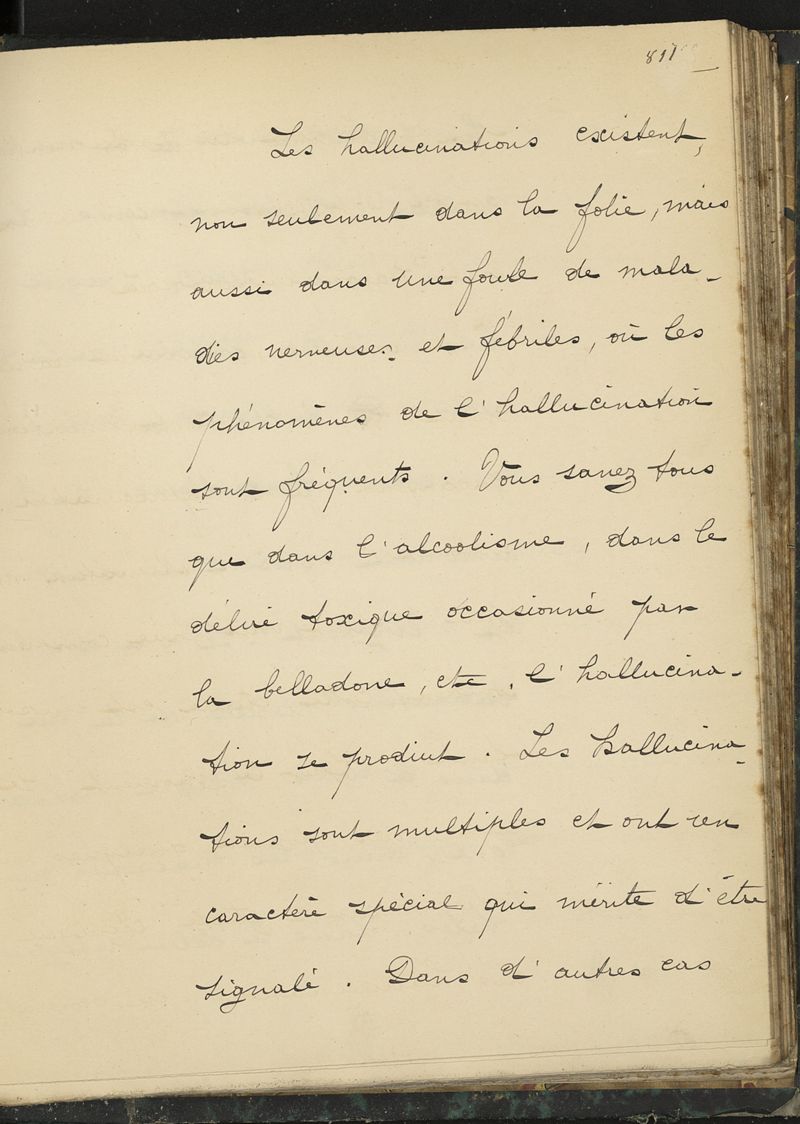 811
Les hallucinations existent,
non seulement dans la folie, mais
aussi dans une foule de mala-
dies nerveuses et fébriles, où les
phénomènes de l'hallucination
sont fréquents. Vous savez tous
que dans l'alcoolisme, dans le
délire toxique occasionné par
la belladone, etc, l'hallucina-
tion se produit. Les hallucina-
tions sont multiples et ont un
caractère spécial qui mérite d'être
signalé. Dans d'autres cas